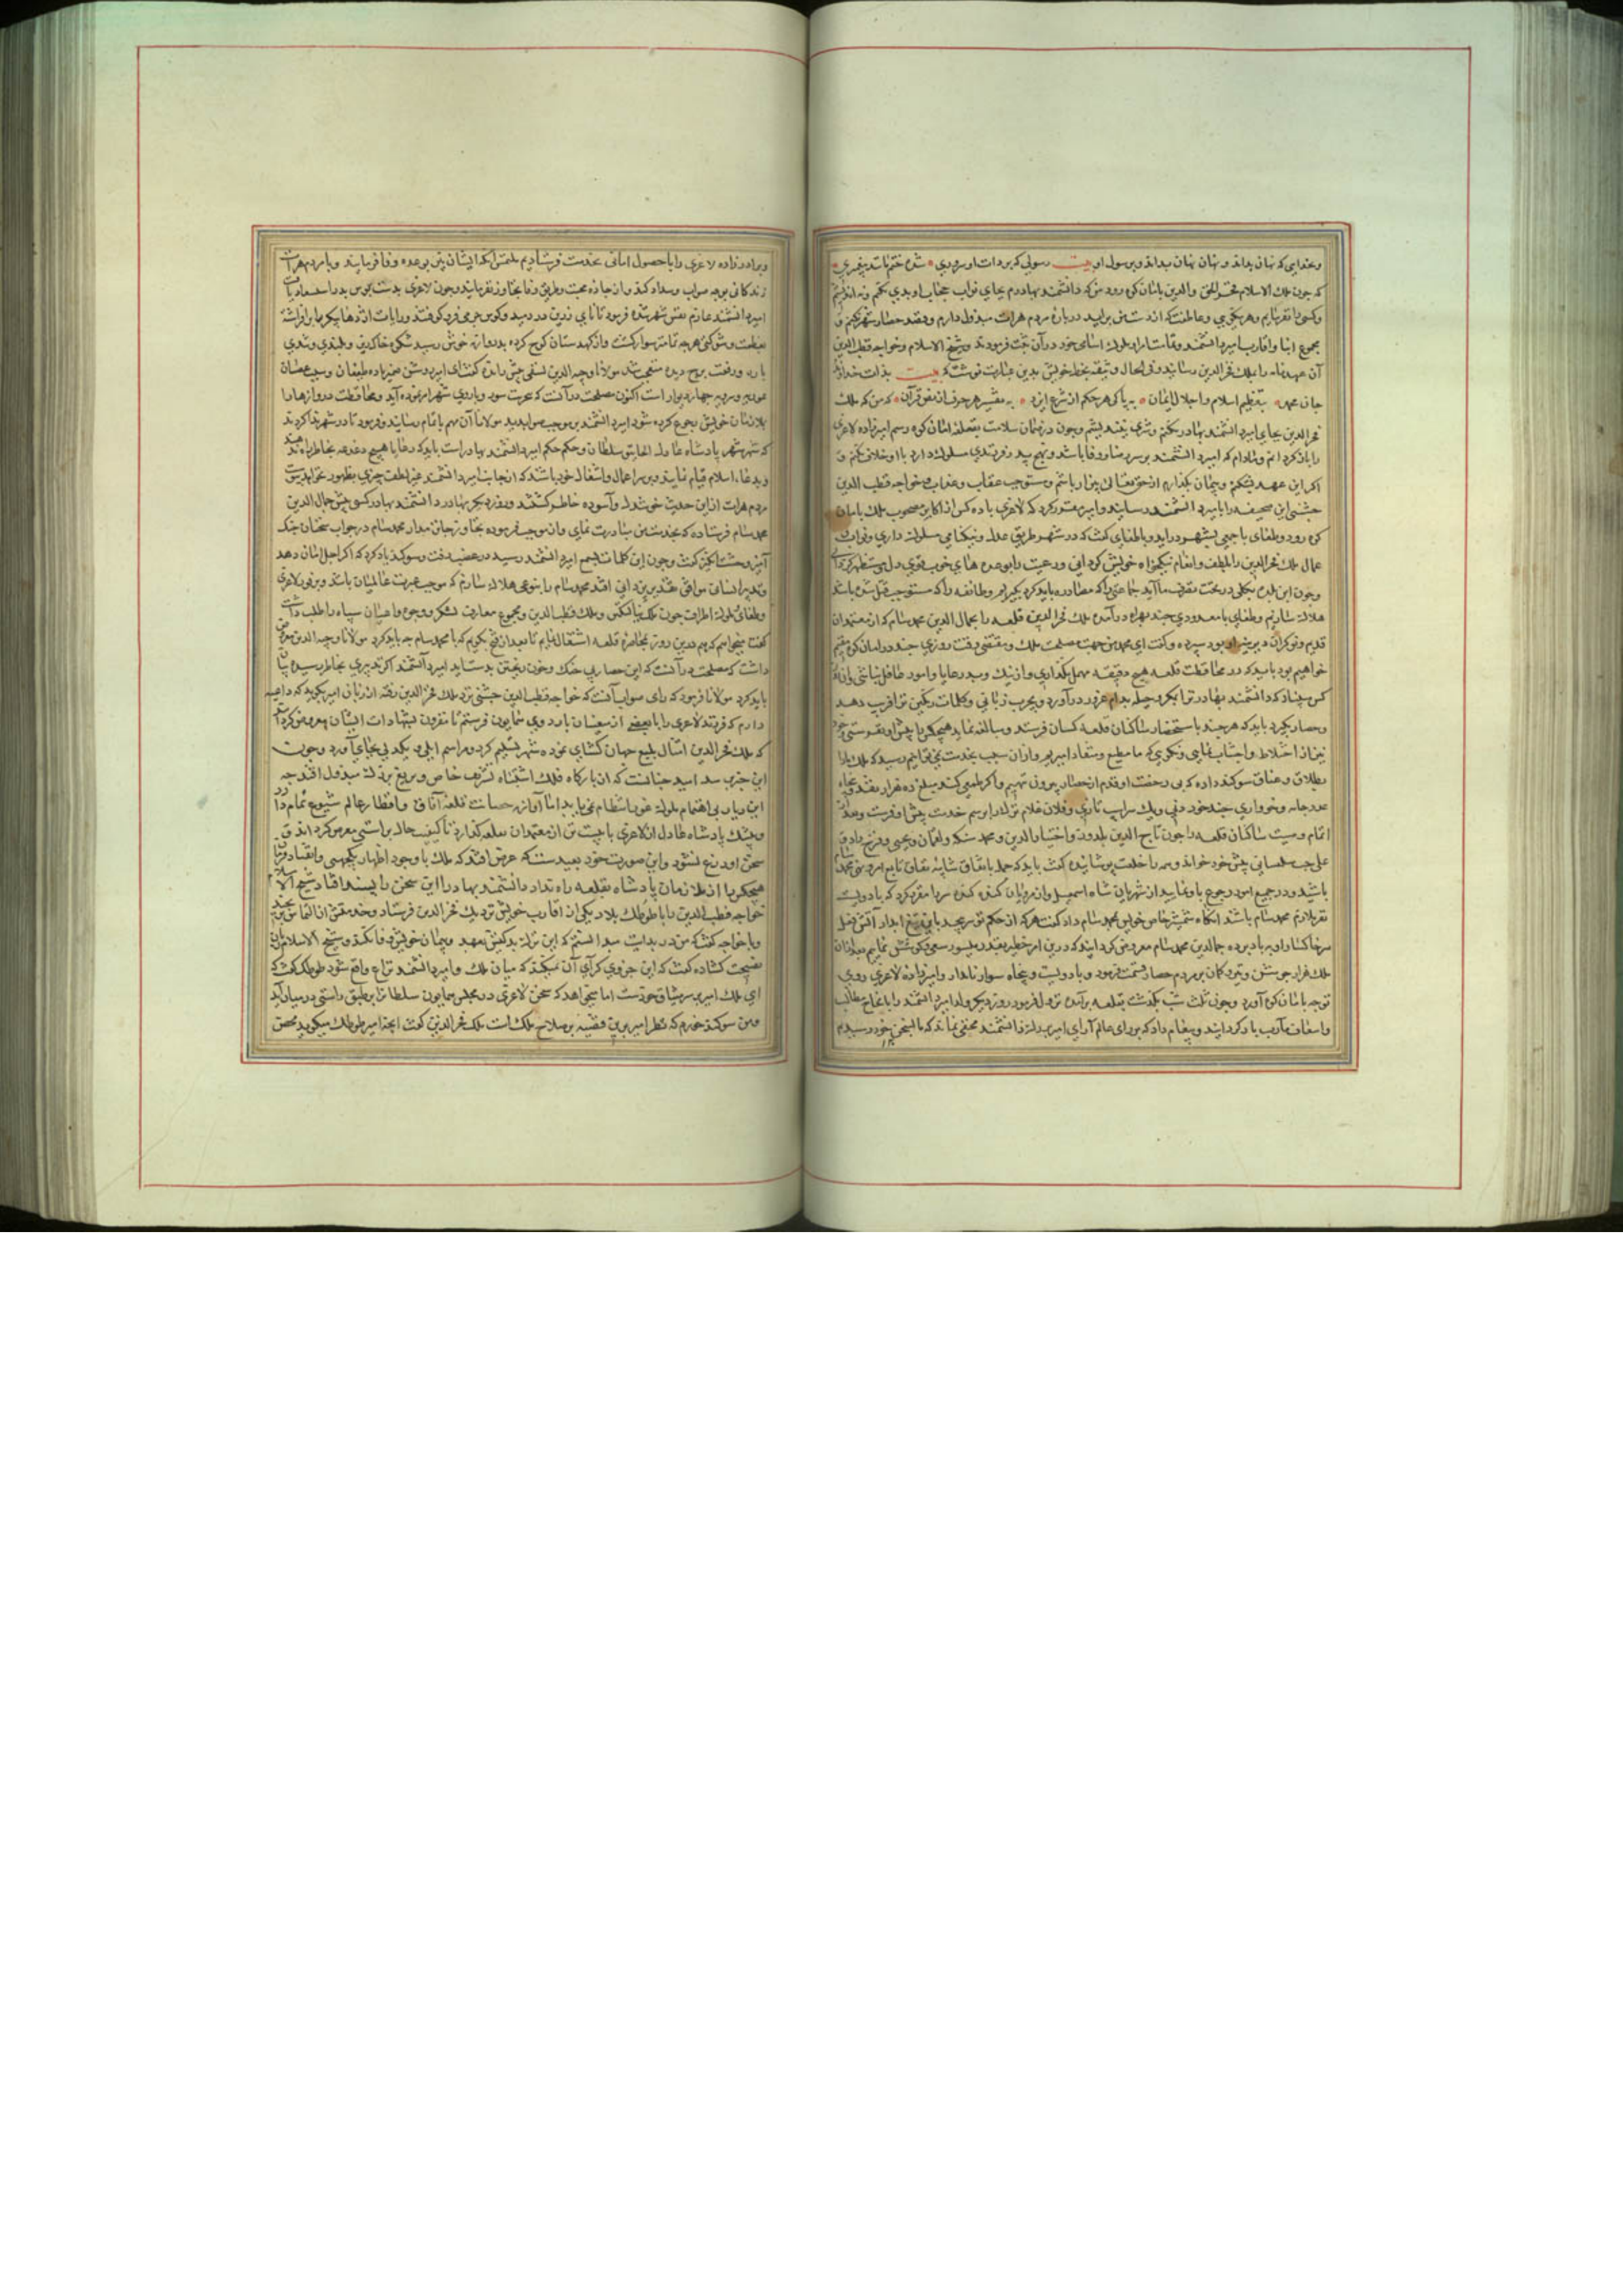 وبخدایی که نهان بداند و نهان نهان بداند وبرسول او بیت رسولی که بر ذات او سروری شده ختم تا شد پیغمبری
که چون ملک الاسلام فخر الحق والدین بامان کوه رود من که دانشمند بهادرم بجای نواب جناب او بدی نکنم و نه اندیشم
وکسی را نفرمایم وهر نیکویی وعاطفت که از دست من براید درباره مردم هرات مبذول دارم وقصد حصار شهر نکنم و
مجموع ابنا واقارب امیر دانشمند و ملوک اسامی خود در آن ثبت فرمودند و شیخ الاسلام وخواجه قطب الدین
آن عهدنامه را بملک فخر الدین رسانیدند وفی الحال وثیقه بخط خویش بدین عبارت نوشت که بیت بذات خداوند
جان بتعظیم اسلام واجلال ایمان به پاکی هر حکم از شرع ایزد به تفسیر هر حرف از نص قرآن که من که ملک
فخر الدین بجای امیر دانشمند بهادر نکنم وشری نیندیشم وچون در ضمان سلامت بقلعه امان کوه رسم امیرزاده لاغری
را باز گردانم ومادام که امیر دانشمند بر سر رضا ووفا باشد ونهج پدر فرزندی مسلوک دارد با او خلافی نکنم و
اگر این عهد بشکنم وپیمان بگذارم از حق تعالی بیزار باشم ومستوجب عقاب وعذاب وخواجه قطب الدین
چشتی این صحیفه را بامیر دانشمند رسانید وامیر مقرر کرد که لاغری با ده کس از اکابر مصحوب ملک بامان
کوه رود وطغای با جمعی بشهر درآید وبا طغای گفت که در شهر طریق عدل ونیکنامی مسلوک داری ونواب
عمال ملک فخر الدین را بلطف وانعام نیکخواه خویش گردانی ورعیت را بوعده های خوب قوی دل ومستظهر گردانی
وچون این بلده بکلی در تحت تصرف ما آید جماعتی را که مصادره باید کرد بگیریم وطایفه را که مستوجب قتل شده باشند
هلاک سازیم وطغای با معدودی چند بهراه درآمده ملک فخر الدین قلعه را بجمال الدین محمد سام که از معتمدان
قدیم ونوکران دیرینه او بود سپرده وگفت ای محمد من جهت مصلحت ملک ومقتضی وقت روزی چند در امان کوه مقیم
خواهم بود باید که در محافظت قلعه هیچ دقیقه مهمل نگذاری واز نیک وبد رعایا وامور غافل نباشی
کس مبادا که دانشمند بهادر ترا بمکر وحیله بدام غرور درآورد وبچرب زبانی وکلمات رنگین ترا فریب دهد
وحصار بگیرد باید که هر چند باستحضار ساکنان قلعه کسان فرستد ومبالغه نماید هیچکس را پیش او نفرستی وخود
نیز از اختلاط واجتناب نمایی وبگویی که ما مطیع ومنقاد امیریم واز آن سبب بخدمت نمی توانیم رسید که ملک ما را
بطلاق وعتاق سوگند داده که بی رخصت او قدم از حصار بیرون ننهیم واگر طمعی کند مبلغ ده هزار نقد وپنجاه
عدد جامه وخرواری چند خوردنی ویک سر اسب تازی وفلان غلام ترک را برسم خدمت پیش او فرست وبعد از
اتمام وصیت ساکنان قلعه را چون تاج الدین یلدوز واختیار الدین ومحمد سنکه ولقمان ویحیی وفرخ زاد و
علی پیش خود خواند وهمه را خلعت پوشانیده گفت باید که جمله باتفاق بی شائبه نفاق تابع امر ونهی محمد سام
باشید ودر جمیع امور رجوع باو نمایید از شهریان شاه اسمعیل واز غوریان مقرر کرد که با دویست
نفر ملازم محمد سام باشند آنگاه شمشیر خاص خویش بمحمد سام داد گفت هر که از حکم تو سر پیچد بآتش تیغ آبدار
سر خاکسار او بر باد بر ده جمال الدین محمد سام معروض گردانید که درین امر خطیر بقدر میسور سعی وکوشش نمایم بعد از آن
ملک هزار جوشن وتیر وکمان بر مردم حصار قسمت فرمود وبا دویست وپنجاه سوار نامدار وامیرزاده لاغری روی
توجه بامان کوه آورد وچون ثلث شب بگذشت بقلعه برآمده نزول فرمود روز دیگر ولد امیر دانشمند را بانجاح مطالب
واسعاف مآرب باز گردانید وپیغام داد که بر رای عالم آرای امیر بزرگ دانشمند مخفی نماند که ما بسخن خود رسیدیم
وبرادرزاده لاغری را با حصول امانی بخدمت فرستادیم ملتمس آنکه ایشان نیز بوعده وفا فرمایند وبا مردم هرات
زندگانی بوجه صواب وسداد کند واز جاده محبت وطریق وفا تجاوز نفرمایند وچون لاغری بدستبوس پدر استسعاد یافت
امیر دانشمند عازم نفس شهر شده فرمود تا نای زرین در دمید وکوس حربی فرو کوفتند ورایات اژدها پیکر برافراشته
بعظمت وشوکتی هر چه تمامتر سوار گشت واز کهدستان کوچ کرده بدروازه خوش رسید شکوه خاکریز وبلندی وتندی
باره ورفعت بروج دیده متعجب شد مولانا وجیه الدین نسفی پیش رانده گفت ای امیر روشن ضمیر باده طبقعان
چهار دیوار است اکنون مصلحت در آنست که بر سور وباروی شهر برآید ومحافظت دروازها را
ملازمان خویش رجوع کرده شود امیر دانشمند بر موجب صوابدید مولانا آن مهم باتمام رسانید وفرمود تا در شهر ندا کردند
که شهر شهر پادشاه عادل الجایتو سلطان وحکم حکم امیر دانشمند بهادر است باید که رعایا هیچ دغدغه بخاطر راه ندهند
وبدعاء اسلام قیام نمایند وبر سر اعمال واشغال خود باشند که از جانب امیر دانشمند غیر لطف چیزی بظهور نخواهد پیوست
مردم هرات از این حدیث خوشدل وآسوده خاطر گشتند وروز دیگر بهادر دانشمند بهادر کسی پیش جمال الدین
محمد سام فرستاده که بخدمت من مبادرت نمای واز موجب فرموده تجاوز جایز مدار محمد سام در جواب سخنان جنگ
آمیز وحشت انگیز گفت وچون این کلمات بسمع امیر دانشمند رسید در غضب رفت وسوگند یاد کرد که اگر اجل امان دهد
وتدبیر انسان موافق تقدیر یزدانی افتد محمد سام را بنوعی هلاک سازم که موجب عبرت عالمیان باشد وبر فور لاغری
وطغای وملوک اطراف چون ملک وملک قطب الدین ومجموع معارف لشکر ووجوه واعیان سپاه را طلب داشت
گفت میخواهم که هم درین روز بمحاصره قلعه اشتغال نمایم تا بعد از فتح بگویم که با محمد سام چه باید کرد مولانا وجیه الدین معروض
داشت که مصلحت در آنست که این حصار بی جنگ وخون ریختن بدست آید امیر دانشمند اگر تدبیری بخاطر رسیده بیان
باید کرد مولانا فرمود که رای صواب آنست که خواجه قطب الدین چشتی نزد ملک فخر الدین رفته از زبان امیر بگوید که داعیه
دارم که فرزند لاغری را با بعضی از معینان باردوی همایون فرستم تا مقرون بشهادات ایشان معروض گرداند
که ملک فخر الدین امتثال یرلیغ جهان گشای نموده شهر تسلیم کرد ومراسم ایلی ویکدلی بجای آورد وچون
این خبر رسد امید چنانست که از بارگاه فلک اشتباه تشریف خاص ویرلیغ بزرگ مبذول افتد چه
این دیار بی اهتمام ملوک غور انتظام نمی یابد اما آوازه حصانت قلعه آفاق واقطار عالم شیوع تمام دارد
وبیشک پادشاه عادل از لاغری با بیست تن از معتمدان بقلعه گذارد تا کیفیت حال براستی بعرض گرداند و
سخن او دروغ نشود واین صورت خود بعید است که عرض افتد که ملک با وجود اظهار یکجهتی وانقیاد فرمان
هیچکس را از ملازمان پادشاه بقلعه راه نداد دانشمند بهادر را این سخن پسند افتاد شیخ الاسلام
خواجه قطب الدین را با طوطک بلا که یکی از اقارب خویش نزدیک فخر الدین فرستاد
وبا خواجه گفت که من در بدایت میدانستم که این ترک بدکیش بعهد وپیمان خویش وفا نکند وشیخ الاسلام زبان
نصیحت گشاده گفت که این جزوی کرای آن نمیکند که میان ملک وامیر دانشمند نزاع واقع شود طوطک گفت که
ای ملک امیر بر سر میثاق خودست اما میخواهد که سخن لاغری در مجلس همایون سلطان بر طبق راستی در میان آید
ومن سوگند خورم که نظر امیر برین قضیه بر صلاح ملک است ملک فخر الدین گفت آنچه امیر طوطک میگوید محض